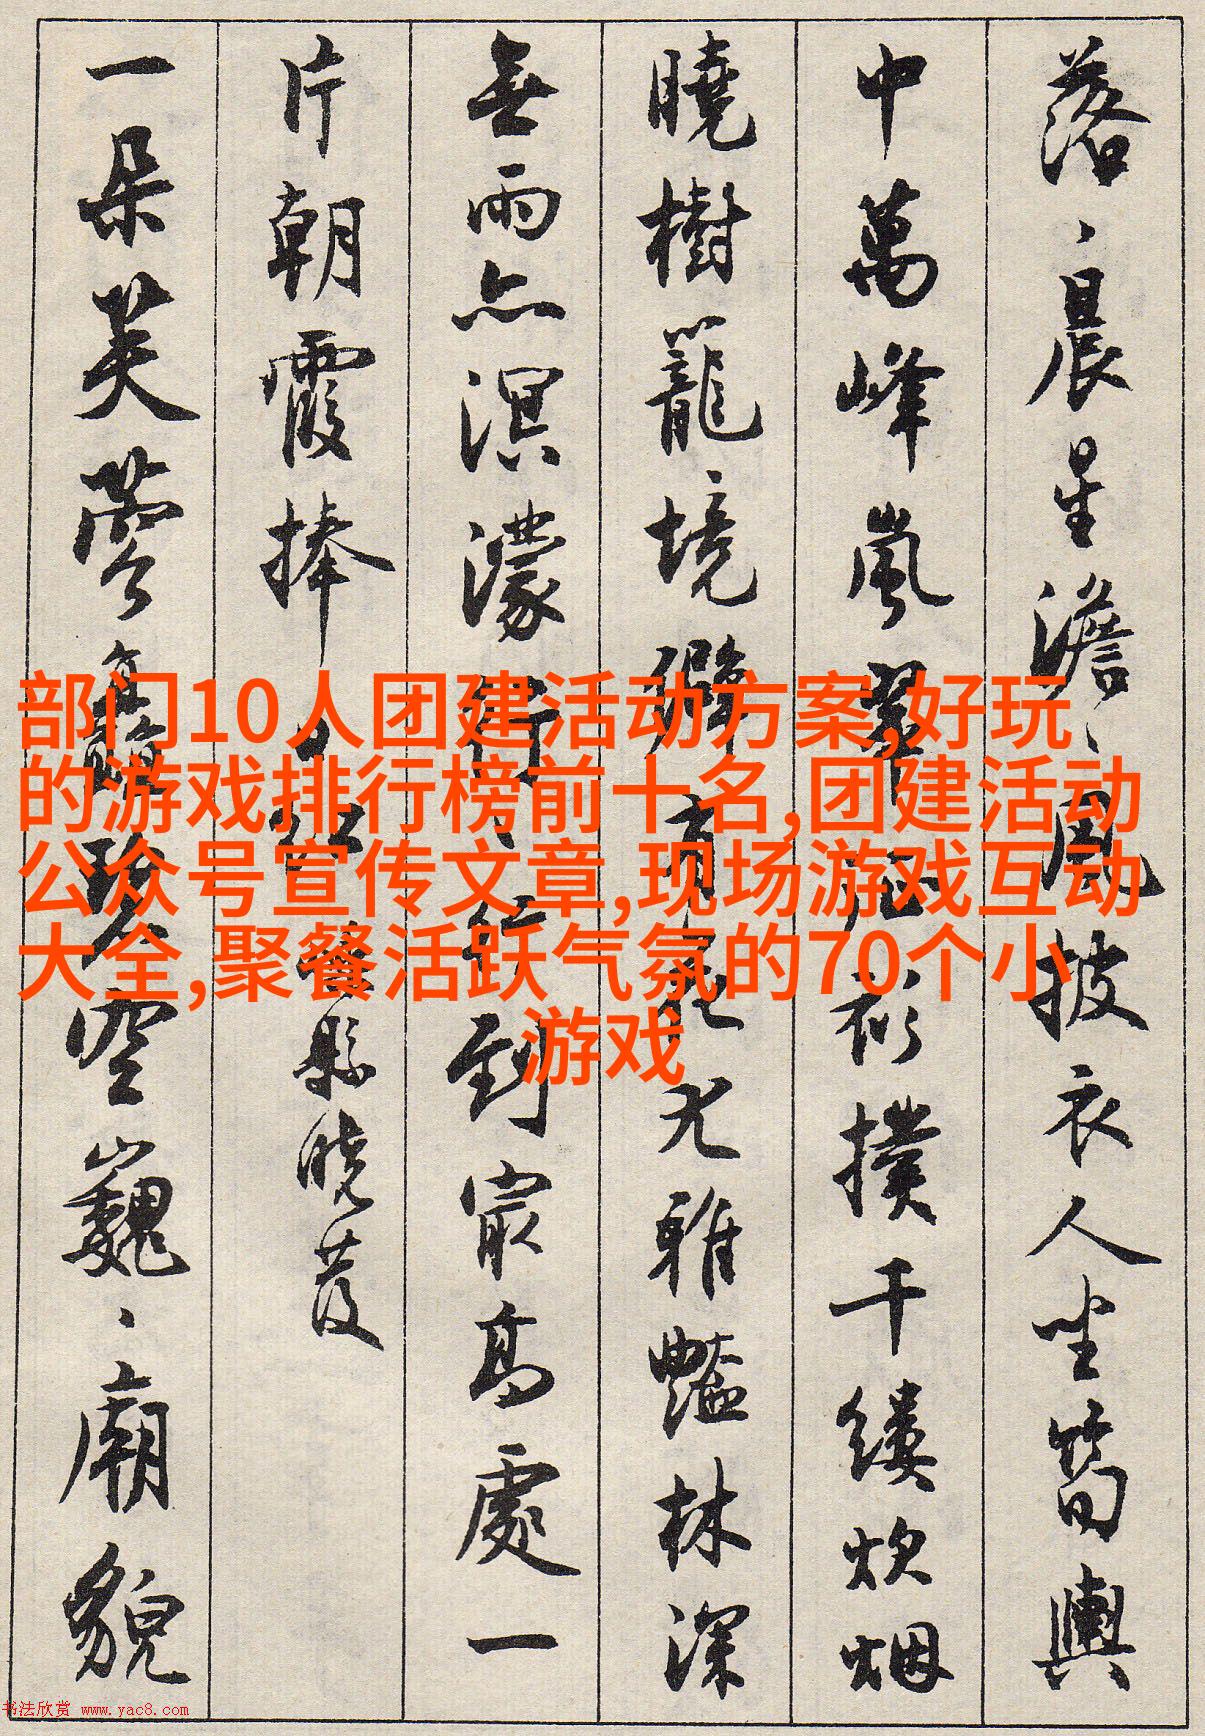 落、晨星澹、風披衣人坐筍輿
中萬峰嵐翠衫撲千縷炊烟
曉樹籠境僻有花尤雅豔林深
無雨亦溟濛行到冣高處一
片朝霞捧日紅 縣曉發
一朵芙蓉矗碧空巍、廟貌
部门10人团建活动方案,好玩
的游戏排行榜前十名,团建活动
公众号宣传文章,现场游戏互动
大全,聚餐活跃气氛的70个小
游戏
书法欣赏 www.yac8.com